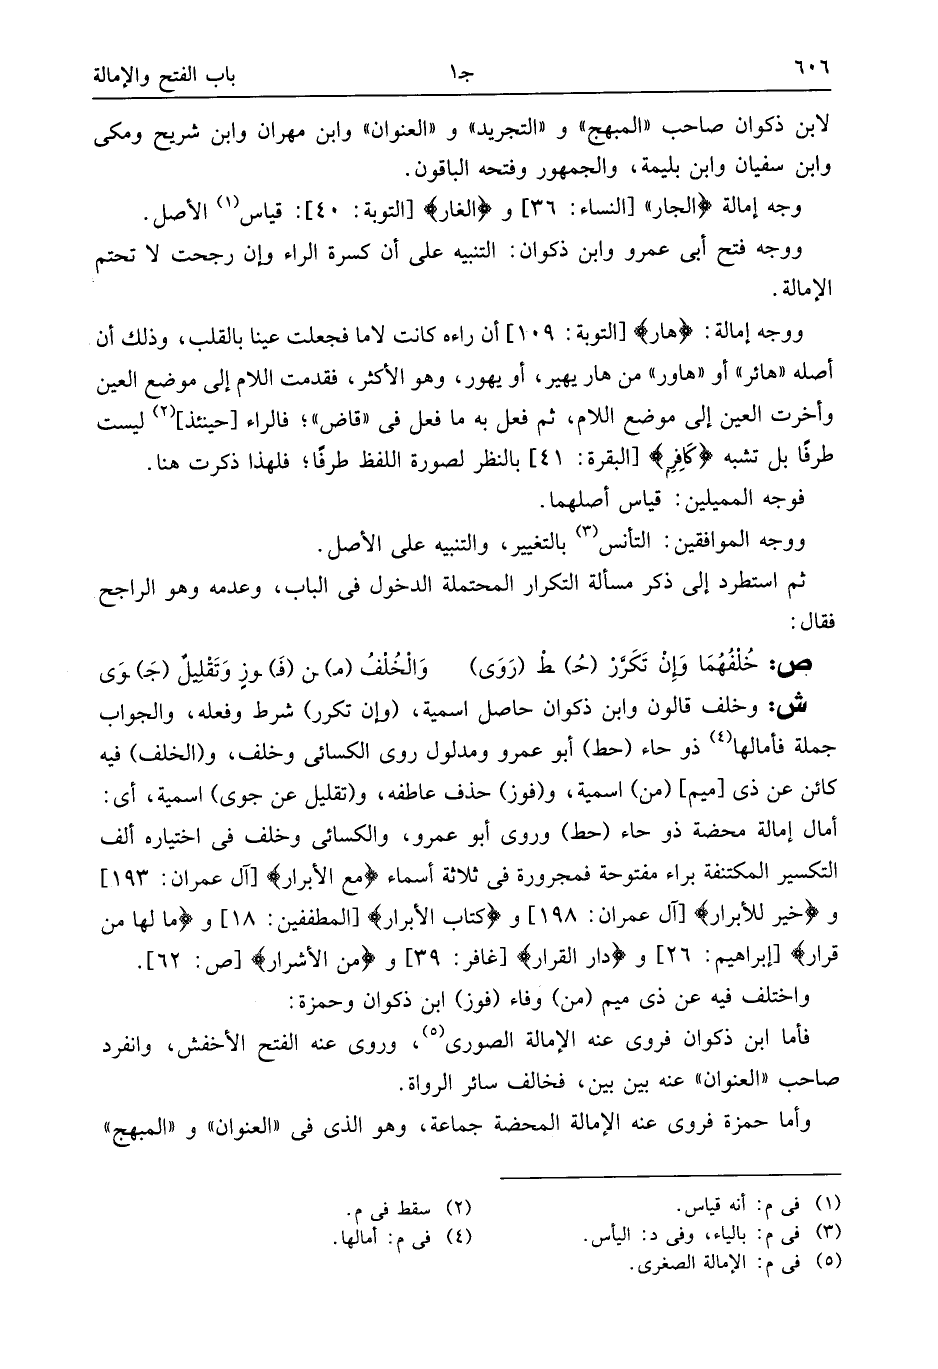 ٦٠٦ جـ١ باب الفتح والإمالة
لابن ذكوان صاحب «المبهج» و «التجريد» و «العنوان» وابن مهران وابن شريح ومكى
وابن سفيان وابن بليمة، والجمهور وفتحه الباقون.
وجه إمالة ﴿الجار» [النساء: ٣٦] و ﴿الغار﴾ [التوبة: ٤٠]: قياس(١) الأصل.
ووجه فتح أبى عمرو وابن ذكوان: التنبيه على أن كسرة الراء وإن رجحت لا تحتم
الإمالة.
ووجه إمالة: ﴿هار﴾ [التوبة: ١٠٩] أن راءه كانت لاما فجعلت عينا بالقلب، وذلك أن
أصله «هائر» أو «هاور» من هار يهير، أو يهور، وهو الأكثر، فقدمت اللام إلى موضع العين
وأخرت العين إلى موضع اللام، ثم فعل به ما فعل فى «قاض»؛ فالراء [حينئذ](٢) ليست
طرفًا بل تشبه ﴿كَافِرٍ﴾ [البقرة: ٤١] بالنظر لصورة اللفظ طرفًا؛ فلهذا ذكرت هنا.
فوجه المميلين: قياس أصلهما.
ووجه الموافقين: التأنس(٣) بالتغيير، والتنبيه على الأصل.
ثم استطرد إلى ذكر مسألة التكرار المحتملة الدخول فى الباب، وعدمه وهو الراجح
فقال:
ص: خُلْفُهُمَا وَإِنْ تَكَرَّرْ (حُ)ـطْ (رَوَى) وَالْخُلْفُ (مِـ)ـن (فَـ)ـوزٍ وَتَقْلِيلٌ (جَـ)ـوَى
ش: وخلف قالون وابن ذكوان حاصل اسمية، (وإن تكرر) شرط وفعله، والجواب
جملة فأمالها(٤) ذو حاء (حط) أبو عمرو ومدلول روى الكسائى وخلف، و(الخلف) فيه
كائن عن ذى [ميم] (من) اسمية، و(فوز) حذف عاطفه، و(تقليل عن جوى) اسمية، أى:
أمال إمالة محضة ذو حاء (حط) وروى أبو عمرو، والكسائى وخلف فى اختياره ألف
التكسير المكتنفة براء مفتوحة فمجرورة فى ثلاثة أسماء ﴿مع الأبرار﴾ [آل عمران: ١٩٣]
و ﴿خير للأبرار﴾ [آل عمران: ١٩٨] و ﴿كتاب الأبرار﴾ [المطففين: ١٨] و ﴿ما لها من
قرار﴾ [إبراهيم: ٢٦] و ﴿دار القرار﴾ [غافر: ٣٩] و ﴿من الأشرار﴾ [ص: ٦٢].
واختلف فيه عن ذى ميم (من) وفاء (فوز) ابن ذكوان وحمزة:
فأما ابن ذكوان فروى عنه الإمالة الصورى(٥)، وروى عنه الفتح الأخفش، وانفرد
صاحب «العنوان» عنه بين بين، فخالف سائر الرواة.
وأما حمزة فروى عنه الإمالة المحضة جماعة، وهو الذى فى «العنوان» و «المبهج»
(١) فى م: أنه قياس. (٢) سقط فى م.
(٣) فى م: بالياء، وفى د: اليأس. (٤) فى م: أمالها.
(٥) فى م: الإمالة الصغرى.